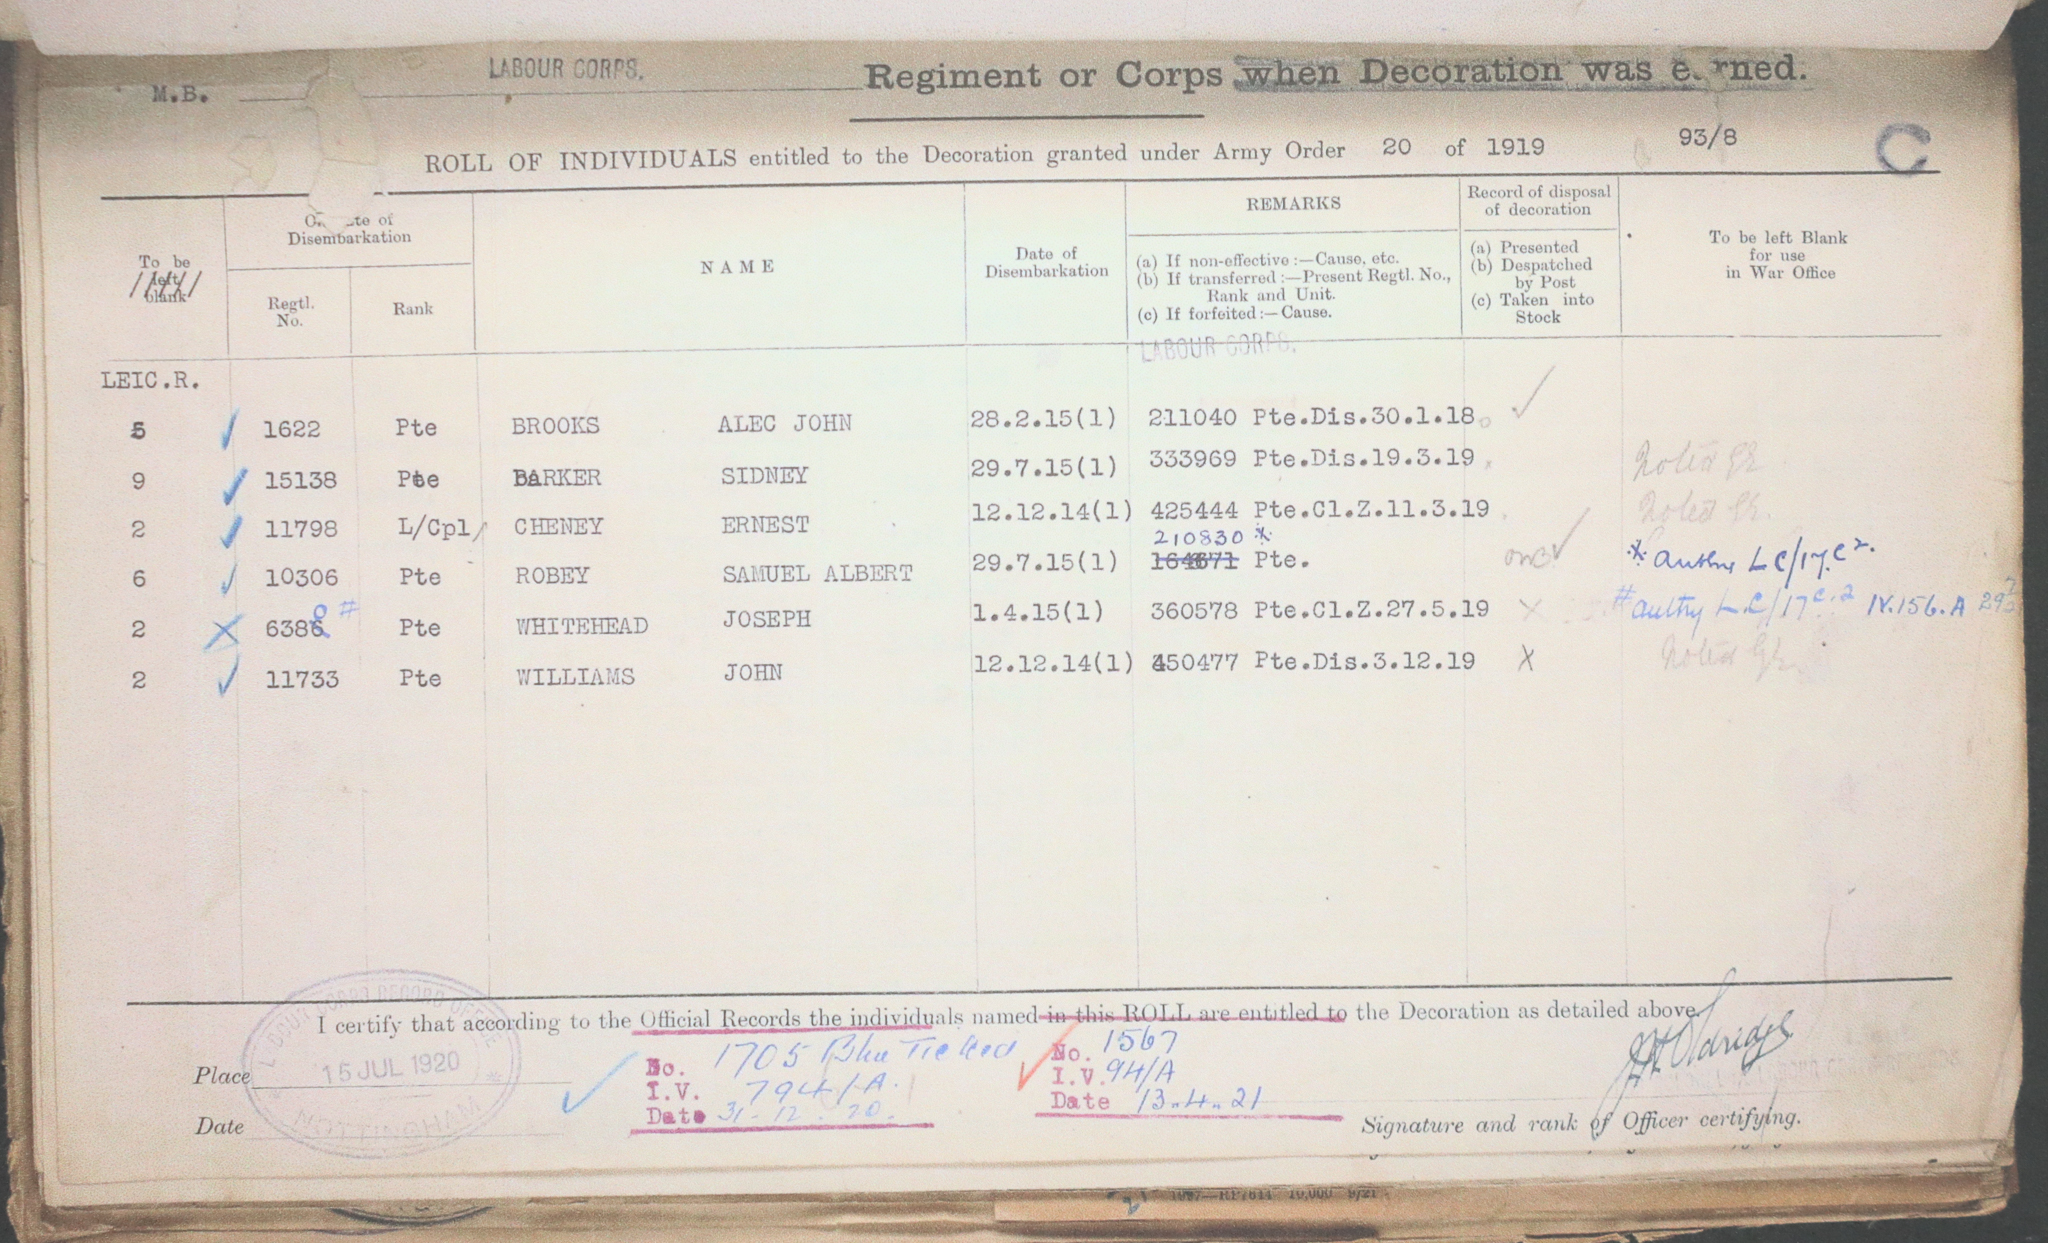 M.B. LABOUR CORPS. Regiment or Corps when Decoration was e. rned.
ROLL OF INDIVIDUALS entitled to the Decoration granted under Army Order 20 of 1919
93/8
C
To be left blank
On date of Disembarkation
Regtl. No.
Rank
NAME
Date of Disembarkation
REMARKS
(a) If non-effective :—Cause, etc.
(b) If transferred :—Present Regtl. No.,
Rank and Unit.
(c) If forfeited :—Cause.
Record of disposal
of decoration
(a) Presented
(b) Despatched
by Post
(c) Taken into
Stock
To be left Blank
for use
in War Office
LABOUR CORPS.
LEIC.R.
5 1622 Pte BROOKS ALEC JOHN 28.2.15(1) 211040 Pte.Dis.30.1.18
9 15138 Pte BARKER SIDNEY 29.7.15(1) 333969 Pte.Dis.19.3.19 Noted
2 11798 L/Cpl CHENEY ERNEST 12.12.14(1) 425444 Pte.Cl.Z.11.3.19 Noted
210830 *
6 10306 Pte ROBEY SAMUEL ALBERT 29.7.15(1) 164671 Pte. * LC/17.C2.
8 #
2 6386 Pte WHITEHEAD JOSEPH 1.4.15(1) 360578 Pte.Cl.Z.27.5.19 X # authy L.C/17 C.2 IV.156.A
2 11733 Pte WILLIAMS JOHN 12.12.14(1) 450477 Pte.Dis.3.12.19 X Noted
I certify that according to the Official Records the individuals named in this ROLL are entitled to the Decoration as detailed above
LABOUR CORPS RECORD OFFICE
15 JUL 1920
NOTTINGHAM
Place
Date
No. 1705 Blue Ticked
I.V. 794/A.
Date 31-12-20.
No. 1567
I.V. 94/A
Date 13.4.21
Signature and rank of Officer certifying.
10,000 9/21